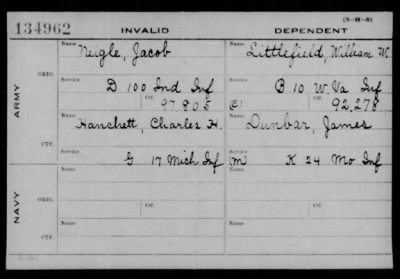 (3-H-3)
134962 INVALID DEPENDENT
Name Neigle, Jacob Name Littlefield, William W.
ORIG. Service D 100 Ind Inf Service B 10 W. Va Inf
Ctf. 97.805 (C) Ctf. 92,278
ARMY
Name Hanchett, Charles H. Name Dunbar, James
CTF. Service G 17 Mich Inf Service (M) K 24 Mo Inf
NAVY
Name Name
ORIG. Ctf. Ctf.
Name Name
CTF.